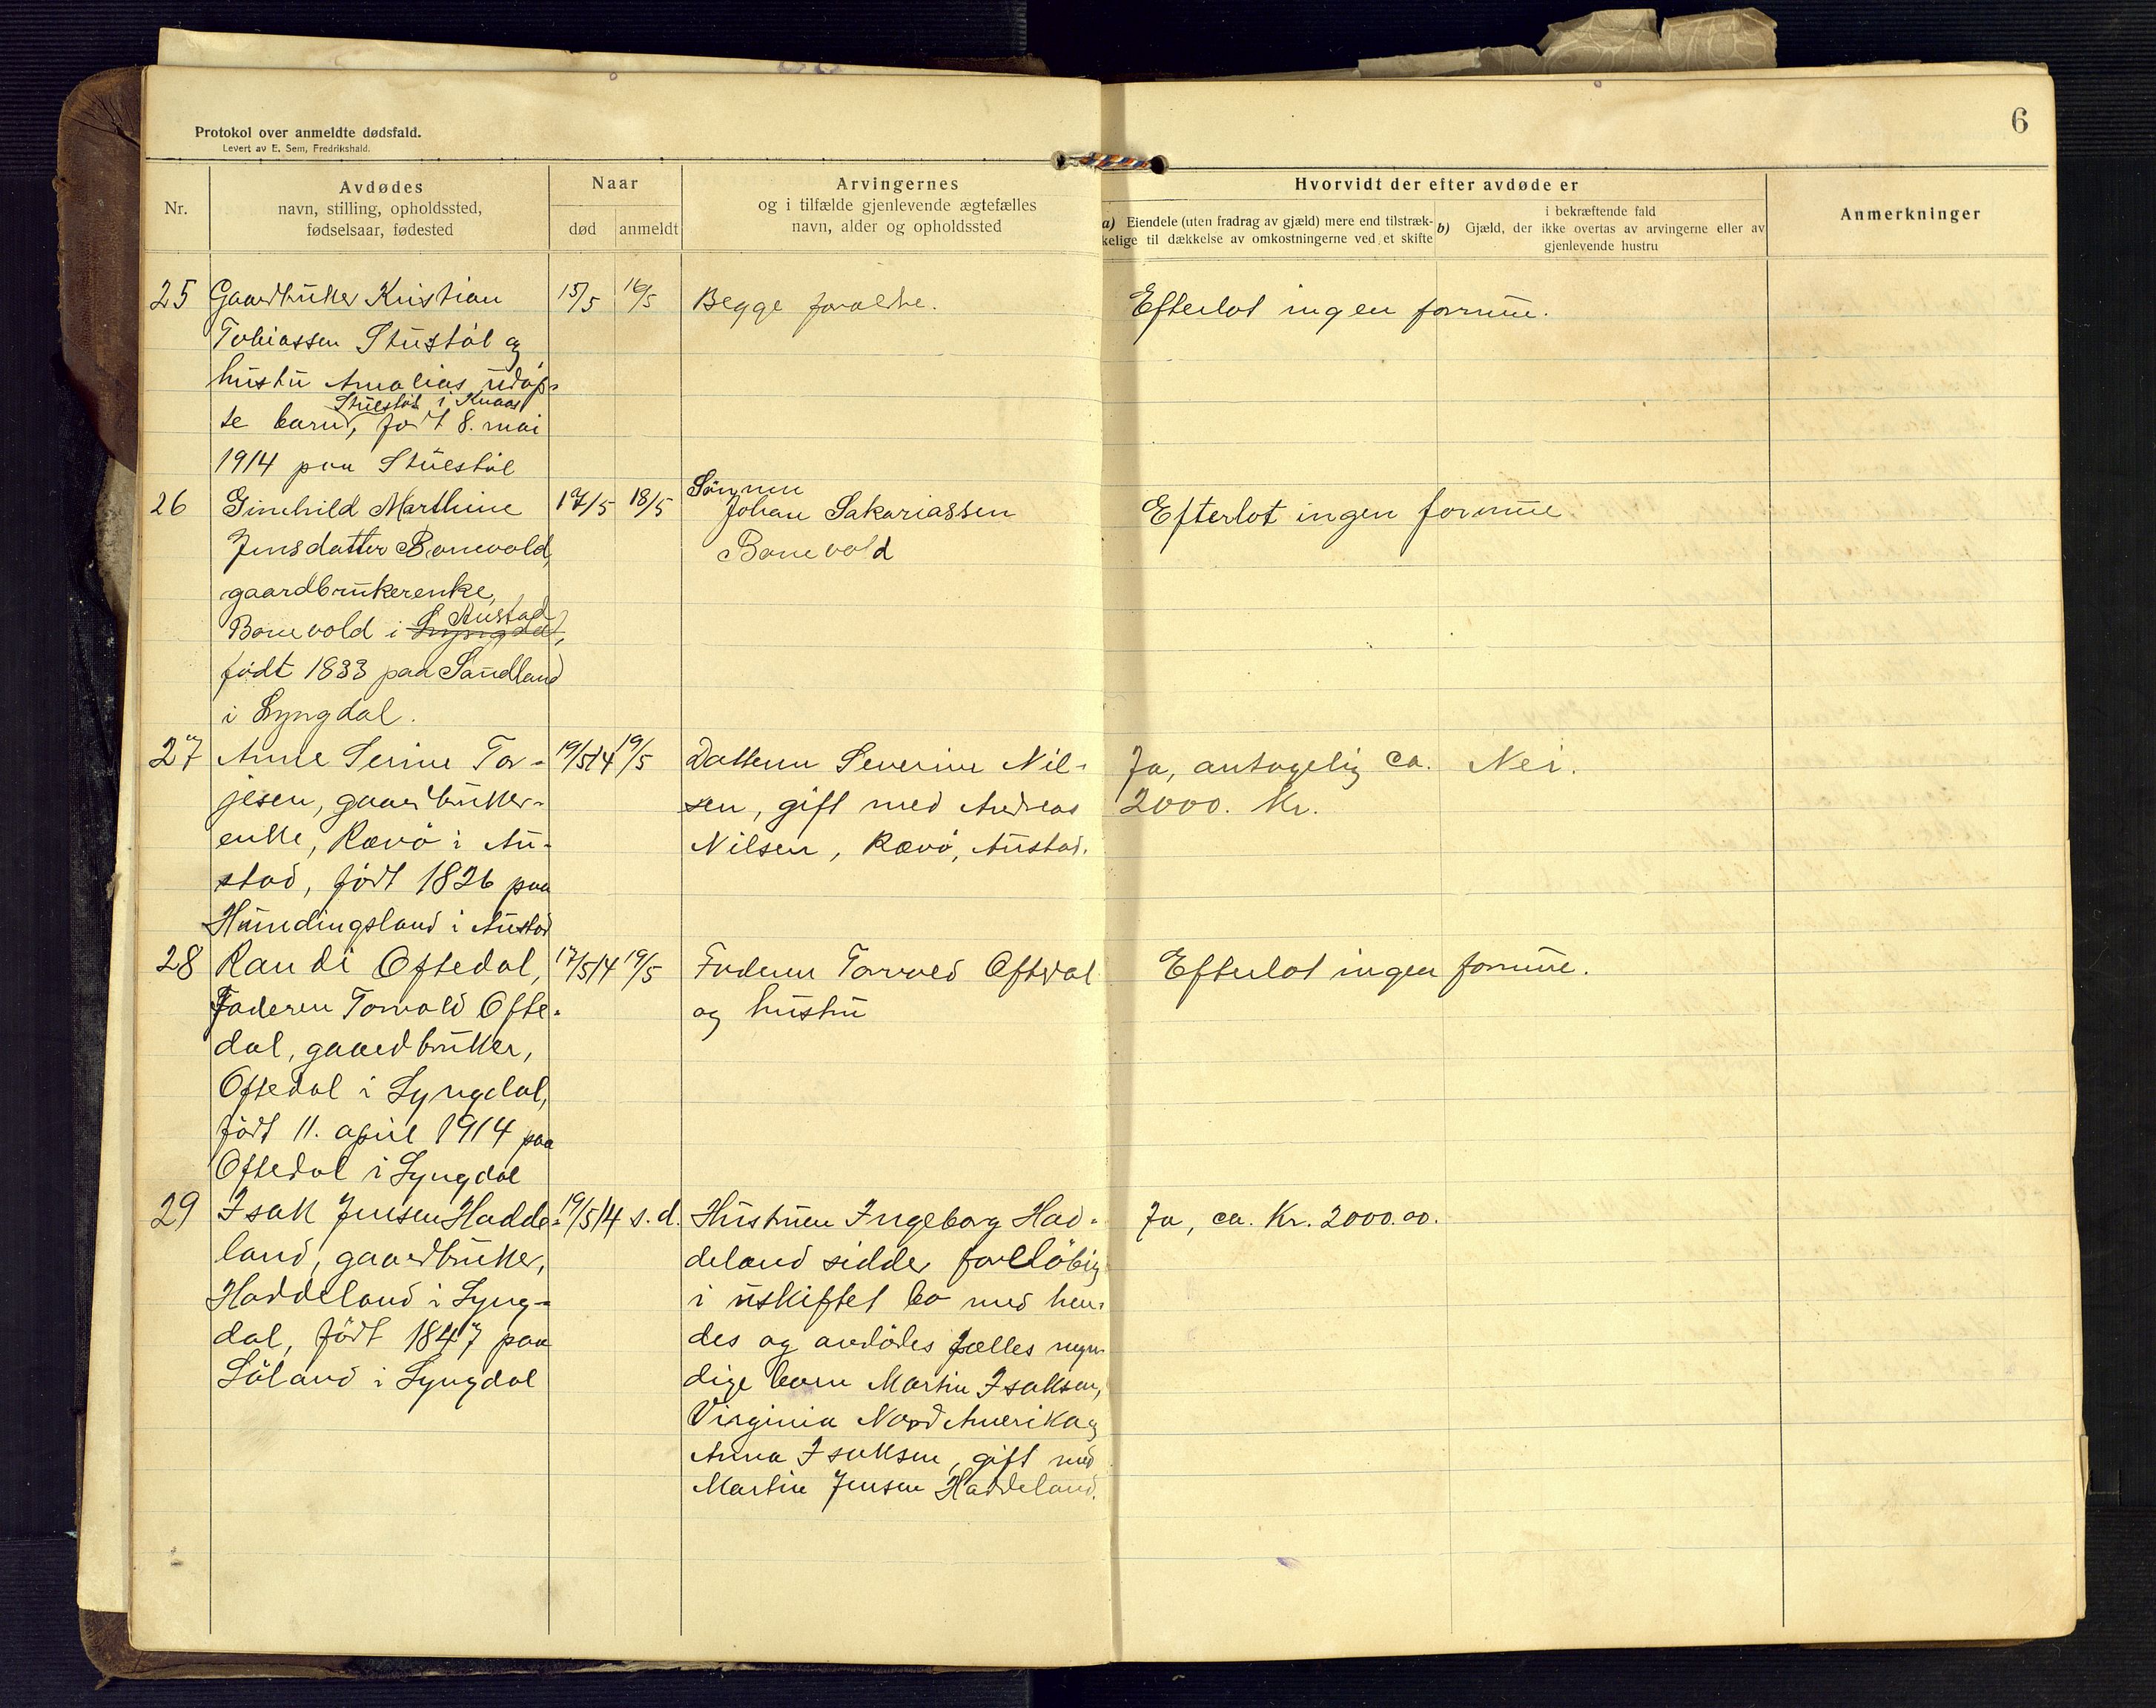 6
Protokol over anmeldte dødsfald.
Levert av E. Sem, Fredrikshald.
Nr.
Avdødes
navn, stilling, opholdssted,
fødselsaar, fødested
Naar
død
anmeldt
Arvingernes
og i tilfælde gjenlevende ægtefælles
navn, alder og opholdssted
Hvorvidt der efter avdøde er
a) Eiendele (uten fradrag av gjæld) mere end tilstræk-
kelige til dækkelse av omkostningerne ved et skifte
i bekræftende fald
b) Gjæld, der ikke overtas av arvingerne eller av
gjenlevende hustru
Anmerkninger
25
Gaardbruker Kristian
Tobiassen Stuestøl og
hustru Amalias udøp-
Stuestøl i Kvaas
te barn, født 8. mai
1914 paa Stuestøl
15/5
16/5
Begge forældre.
Efterlot ingen formue.
26
Gunhild Marthine
Jensdatter Bonevold,
gaardbrukerenke,
Austad
Bonevold i Lyngdal,
født 1833 paa Sandland
i Lyngdal.
17/5
18/5
Sønnen
Johan Sakariassen
Bonevold
Efterlot ingen formue
27
Anne Serine Tor-
jesen, gaardbruker-
enke, Rævø i Au-
stad, født 1826 paa
Hundingsland i Austad
19/5 14
19/5
Datteren Severine Nil-
sen, gift med Andreas
Nilsen, Rævø, Austad.
Ja, antagelig ca.
2000. Kr.
Nei.
28
Randi Oftedal,
Faderen Torvald Ofte-
dal, gaardbruker,
Oftedal i Lyngdal,
født 11. april 1914 paa
Oftedal i Lyngdal
17/5 14
19/5
Faderen Torvald Oftedal
og hustru
Efterlot ingen formue.
29
Isak Jensen Hadde-
land, gaardbruker,
Haddeland i Lyng-
dal, født 1847 paa
Løland i Lyngdal
19/5 14
s. d.
Hustruen Ingeborg Had-
deland sidder foreløbig
i uskiftet bo med hen-
des og avdødes fælles myn-
dige barn Martin Isaksen,
Virginia Nord Amerika og
Anna Isaksen, gift med
Martin Jensen Haddeland.
Ja, ca. Kr. 2000.00.